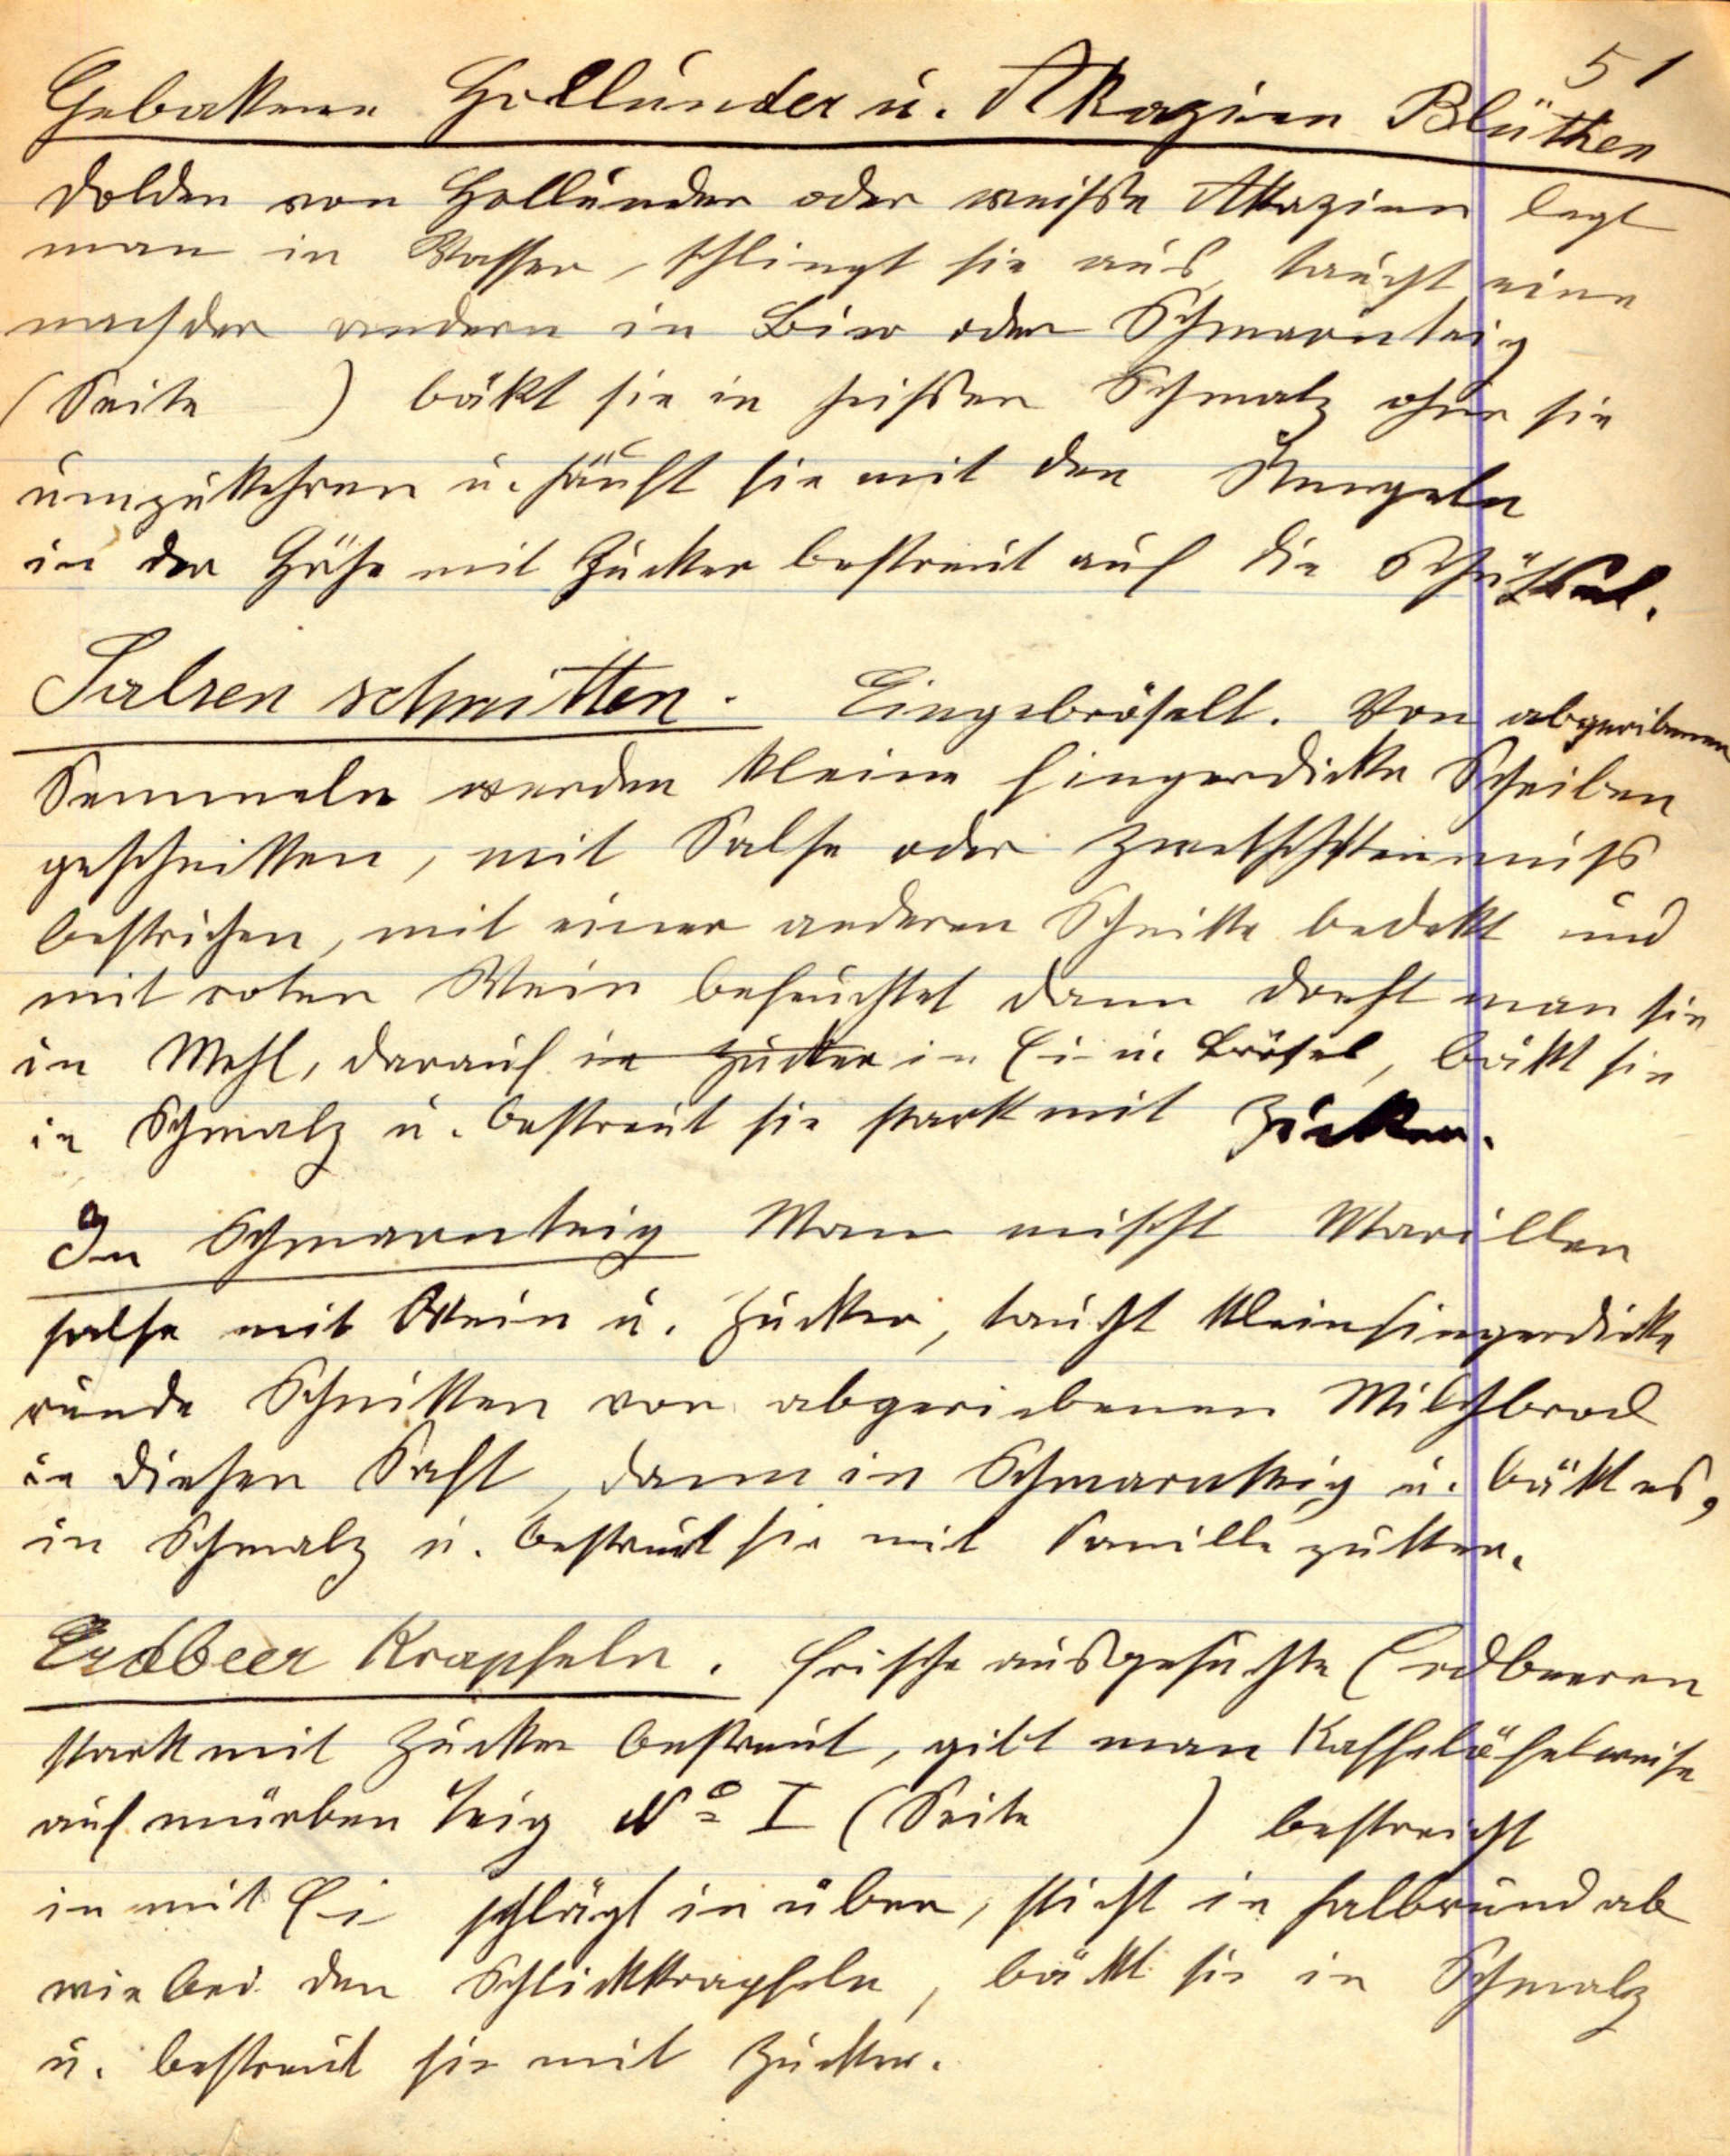 51
Gebakene Hollunder u. Akazien Blüthen
Dolden von Hollunder oder weiße Akazien legt
man in Wasser, schlingt sie aus, taucht eine
nach der andern in Bier oder Schmarnteig
(Seite ) bäkt sie in heißen Schmalz ohne sie
umzukehren u. häuft sie mit den Stengeln
in der Höhe mit Zucker bestreut auf die Schüssel.
Salsen schnitten. Eingebröselt. Von abgeriebenen
Semmeln werden kleine fingerdicke Scheiben
geschnitten, mit Salse oder
bestrichen, mit einer anderen Schnitte bedekt und
mit roten Wein befeuchtet dann dreht man sie
in Mehl, darauf in Zucker in Ei in Brösel, bäkt sie
in Schmalz u. bestreut sie stark mit Zucker.
In Schmarnteig Man mischt Marillen
salse mit Wein u. Zucker, taucht kleinfingerdicke
runde Schnitten von abgeriebenen Milchbrod
in diesen Saft, dann in Schmarnteig u. bäkt es,
in Schmalz u. bestreut sie mit Vanille zukker.
Erdbeer Krapfeln. Frische ausgesuchte Erdbeeren
stark mit Zucker bestreut, gibt man Kaffelöfelweise
auf mürben Teig No I (Seite ) bestreicht
in mit Ei schlägt in über, sticht in halbrund ab
wie bei den Schlickkrapfeln, bäkt sie in Schmalz
u. bestreut sie mit Zucker.